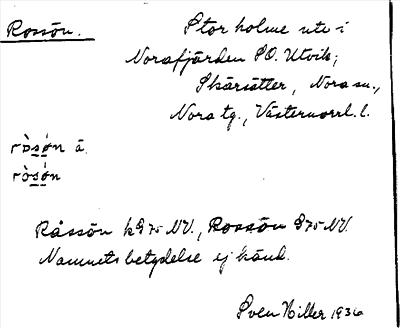 Rossön.
Stor holme ute i
Norafjärden SO. Utvik;
Skärsätter, Nora sn.,
Nora tg., Västernorrl. l.
ròsǿn ä
ròsǿn
Råssön k 975 NV., Rossön 975 NV.
Namnets betydelse ej känd.
Sven Hiller 1936